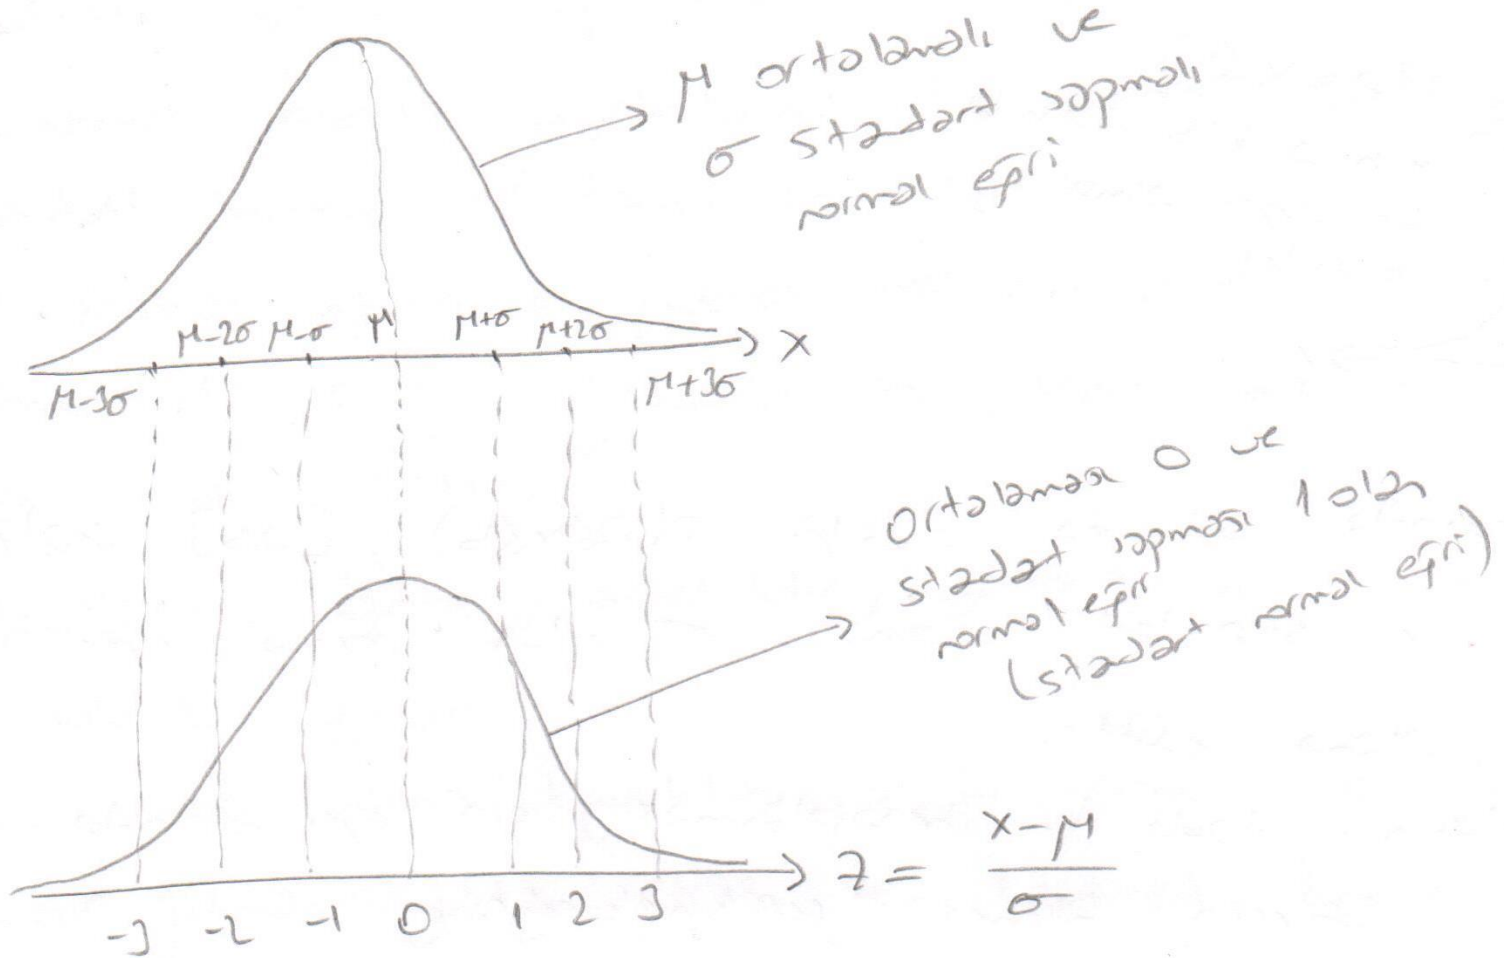 μ ortalamalı ve
σ standart sapmalı
normal eğri
μ-2σ μ-σ μ μ+σ μ+2σ
x
μ-3σ μ+3σ
Ortalaması 0 ve
standart sapması 1 olan
normal eğri
(standart normal eğri)
z = x-μ / σ
-3 -2 -1 0 1 2 3